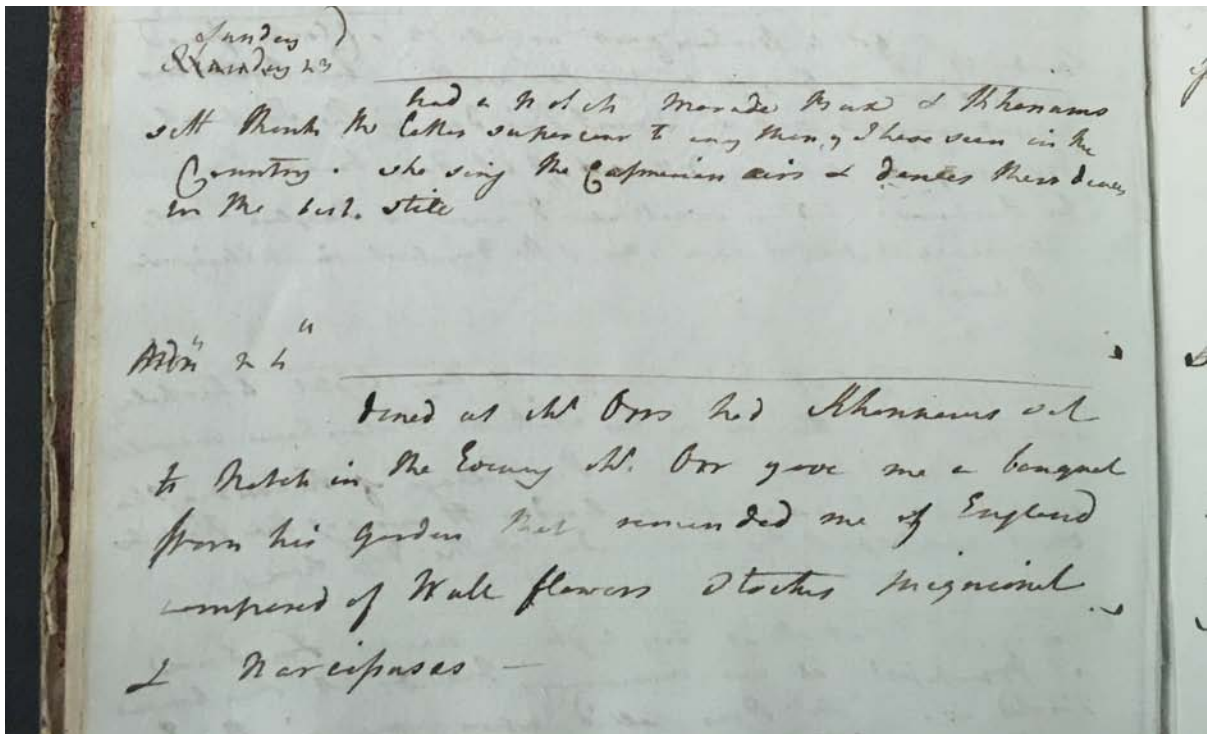 Sunday
Monday 23
had a Notch Morade Bux & Khanums
sett think the latter superior to any thing I have seen in the
Country. she sing the Casmerian airs & dances their dances
in the best stile
24"
dined at Mr Orrs had Khannums set
to Notch in the Evening Mr. Orr gave me a bouquet
from his Garden that reminded me of England
composed of Wall flowers Stocks Mignionet
& Narcissuses —